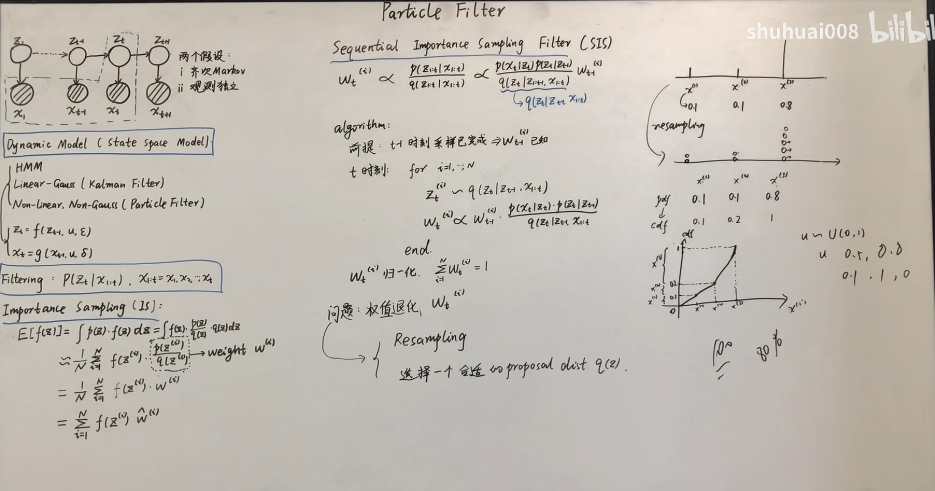 Particle Filter
shuhuai008 bilibili
z₁ z_{t-1} z_t z_{t+1}
x₁ x_{t-1} x_t x_{t+1}
两个假设:
i 齐次Markov
ii 观测独立
Dynamic Model (State Space Model)
HMM
Linear-Gauss (Kalman Filter)
Non-linear, Non-Gauss (Particle Filter)
z_t = f(z_{t-1}, u, ε)
x_t = g(x_{t-1}, u, δ)
Filtering: P(z_t|x_{1:t}), x_{1:t} = x₁, x₂, …, x_t
Importance Sampling (IS):
E[f(z)] = ∫p(z)·f(z)dz = ∫f(z)·p(z)/q(z)·q(z)dz
≈ 1/N Σ_{i=1}^{N} f(z^{(i)}) p(z^{(i)})/q(z^{(i)}) → weight w^{(i)}
= 1/N Σ_{i=1}^{N} f(z^{(i)})·w^{(i)}
= Σ_{i=1}^{N} f(z^{(i)}) ŵ^{(i)}
Sequential Importance Sampling Filter (SIS)
w_t^{(i)} ∝ p(z_{1:t}|x_{1:t})/q(z_{1:t}|x_{1:t}) ∝ p(x_t|z_t)p(z_t|z_{t-1})/q(z_t|z_{1:t-1}, x_{1:t}) w_{t-1}^{(i)}
→ q(z_t|z_{t-1}, x_{1:t})
algorithm:
前提: t-1时刻采样已完成 ⇒ w_{t-1}^{(i)} 已知
t时刻: for i=1,…,N
z_t^{(i)} ~ q(z_t|z_{t-1}, x_{1:t})
w_t^{(i)} ∝ w_{t-1}^{(i)} · p(x_t|z_t)·p(z_t|z_{t-1})/q(z_t|z_{t-1}, x_{1:t}
end.
w_t^{(i)} 归一化, Σ_{i=1}^{N} w_t^{(i)} = 1
问题: 权值退化, w_t^{(i)}
Resampling
选择一个合适的proposal dist q(z).
x^{(1)} x^{(2)} x^{(3)}
0.1 0.1 0.8
resampling
x^{(1)} x^{(2)} x^{(3)}
pdf 0.1 0.1 0.8
cdf 0.1 0.2 1
cdf
1
0.2
0.1
0
u ~ U(0,1)